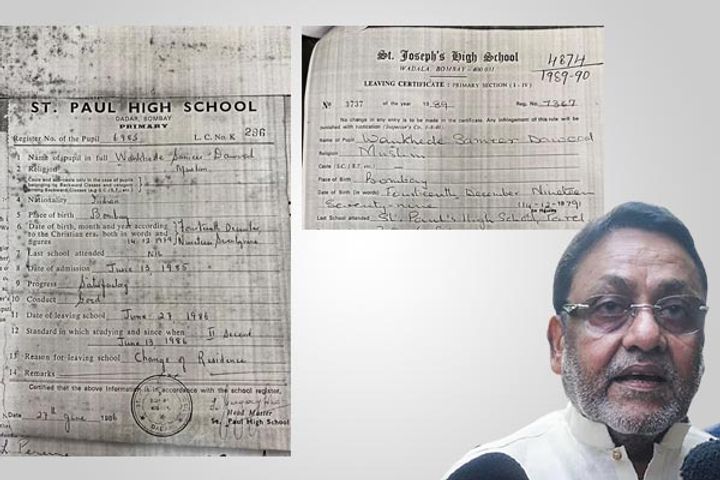 ST. PAUL HIGH SCHOOL
DADAR, BOMBAY
PRIMARY
Register No. of the Pupil 6985 L. C. No. K 286
1 Name of pupil in full Wankhede Sameer Dawood
2 Religion Muslim
4 Nationality Indian
5 Place of birth Bombay
6 Date of birth, month and year according Fourteenth December
to the Christian era, both in words and
figures 14.12.1979 Nineteen Seventynine
7 Last school attended Nil
8 Date of admission June 13 1985
9 Progress Satisfactory
10 Conduct Good
11 Date of leaving school June 27 1986
12 Standard in which studying and since when II Second
June 13 1986
13 Reason for leaving school Change of Residence
14 Remarks
Certified that the above Information is in accordance with the school register.
Date 27th June 1986
Head Master
St. Paul High School
St. Joseph's High School
WADALA, BOMBAY - 400 031
4874
1989-90
LEAVING CERTIFICATE : PRIMARY SECTION (I - IV)
No 3737 of the year 1989 Reg. No. 7367
No change in any entry is to be made in the certificate. Any infringement of this rule will be
Name of Pupil Wankhede Sameer Dawood
Religion Muslim
Caste (S.C./S.T. etc.)
Place of Birth Bombay
Date of Birth (in words) Fourteenth, December Nineteen
Seventy-nine (14-12-1979)
in figures
Last School attended St. Paul's High School,